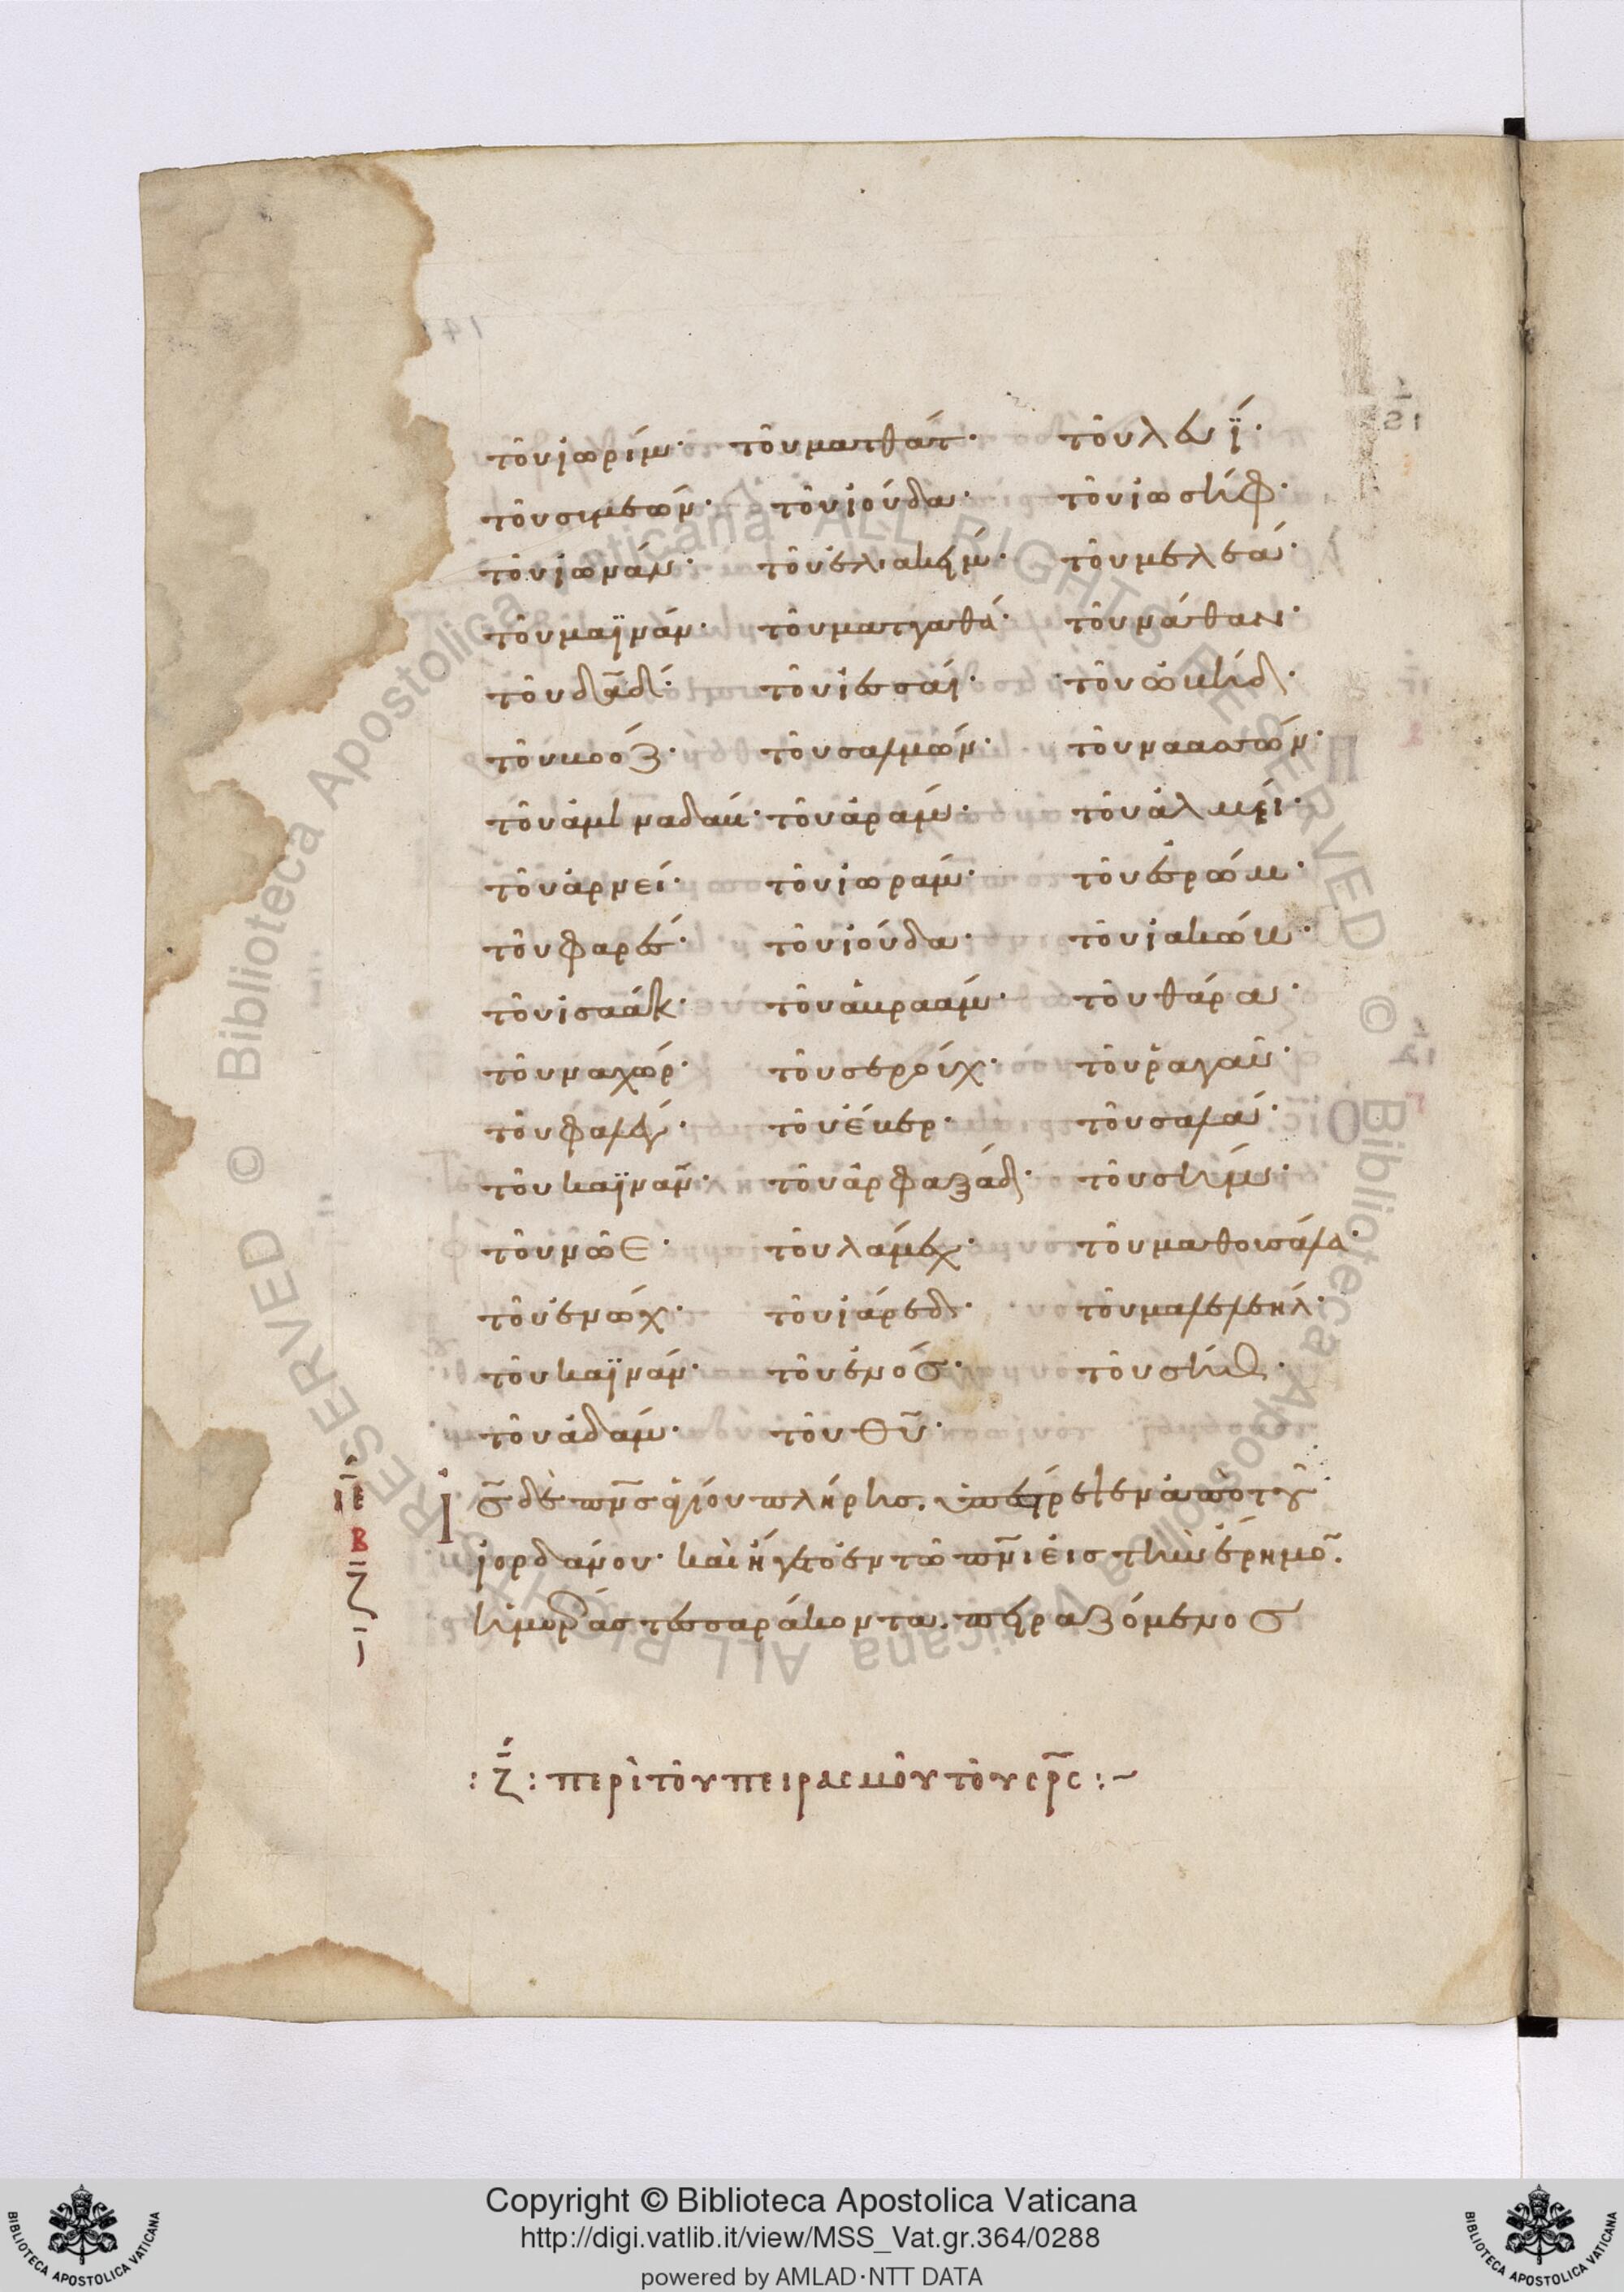 τοῦ ἰωρίμ· τοῦ ματθάτ· τοῦ λευΐ·
τοῦ σιμεών· τοῦ ἰούδα· τοῦ ἰωσήφ·
τοῦ ἰωνάν· τοῦ ἐλιακείμ· τοῦ μελεά·
τοῦ μαϊνάν· τοῦ ματταθά· τοῦ νάθαν·
τοῦ δᾱδ· τοῦ ἰεσσαί· τοῦ ὠβήδ·
τοῦ βοόζ· τοῦ σαλμών· τοῦ ναασσών·
τοῦ ἀμηναδάβ· τοῦ ἀράμ· τοῦ ἀλμεί·
τοῦ ἀρνεί· τοῦ ἰωράμ· τοῦ ἐσρώμ·
τοῦ φαρές· τοῦ ἰούδα· τοῦ ἰακώβ·
τοῦ ἰσαάκ· τοῦ ἀβραάμ· τοῦ θάρα·
τοῦ ναχώρ· τοῦ σερούχ· τοῦ ῥαγαῦ·
τοῦ φαλέγ· τοῦ ἔβερ· τοῦ σαλά·
τοῦ καϊνᾶν· τοῦ ἀρφαξάδ· τοῦ σήμ·
τοῦ νῶε· τοῦ λάμεχ· τοῦ μαθουσάλα·
τοῦ ἐνώχ· τοῦ ἰάρεδ· τοῦ μαλελεήλ·
τοῦ καϊνάν· τοῦ ἐνός· τοῦ σήθ·
τοῦ ἀδάμ· τοῦ θ̄ῡ·
ιε
β
ζ
ι
Ἰ̄ς̄ δὲ π̄ν̄ς̄ ἁγίου πλήρης. ὑπέστρεψεν ἀπὸ τοῦ
ἰορδάνου· καὶ ἤγετο ἐν τῶ π̄ν̄ι εἰς τὴν ἔρημο̄.
ἡμέρας τεσσαράκοντα. πειραζόμενος
: ζ̄ : περὶ τοῦ πειρασμοῦ τοῦ σ̄ρ̄ς :~
Copyright © Biblioteca Apostolica Vaticana
http://digi.vatlib.it/view/MSS_Vat.gr.364/0288
powered by AMLAD·NTT DATA